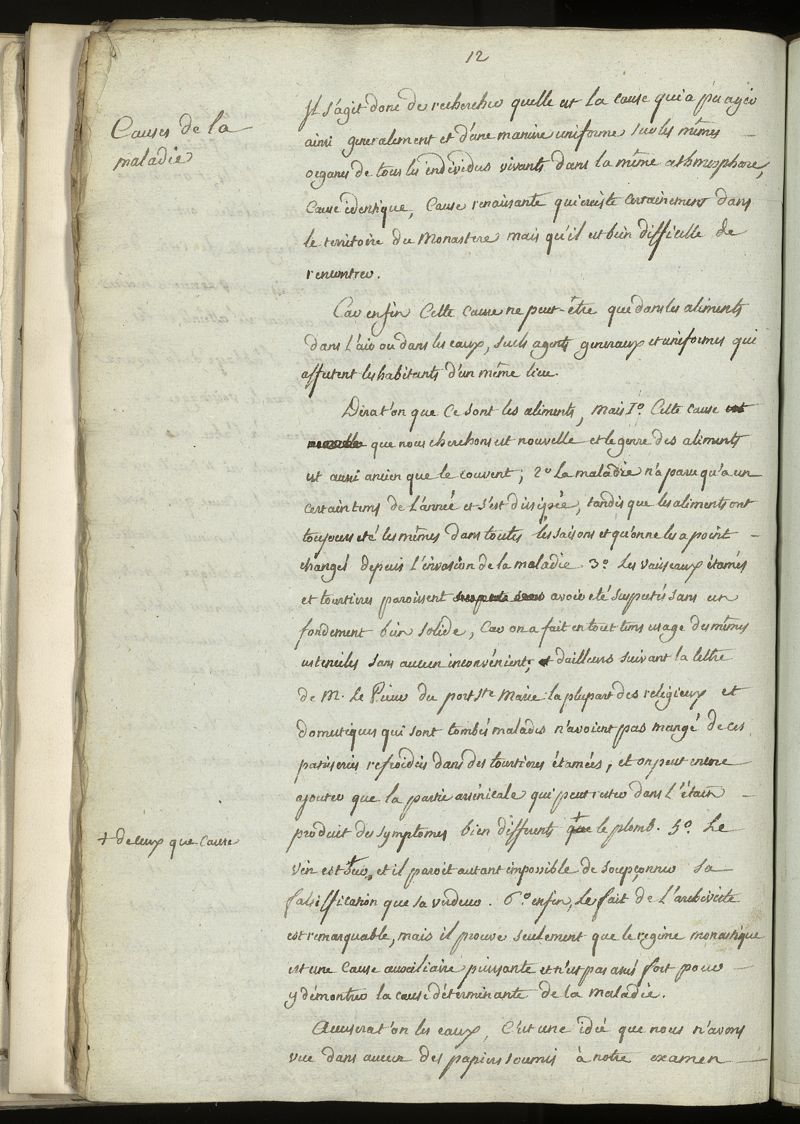 12
Causes de la
maladie
Il s'agit donc de rechercher quelle est la cause qui a pu agir
ainsi generalement et d'une maniere uniforme sur les mêmes
organes de tous les individus vivants dans la même athmosphere,
Cause identique, Cause renaissante qui existe certainement dans
le territoire du Monastere mais qu'il est bien difficile de
rencontrer.
Car enfin Cette Cause ne peut-être que dans les aliments
dans l'air ou dans les eaux, seuls agents generaux et uniformes qui
affectent les habitants d'un même lieu.
Dira t'on que Ce sont les aliments, mais 1.º Cette cause est
nouvelle que nous cherchons est nouvelle et le genre des aliments
est aussi ancien que le couvent; 2.º La maladie n'a paru qu'a un
certain tems de l'année et s'est dissipée, tandis que les aliments ont
toujours eté les mêmes dans toutes les saisons et qu'on ne les a point
changés depuis l'invasion de la maladie 3.º Les vaisseaux étamés
et tourtieres paroissent avoir eté suspectés sans un
fondement bien solide, Car on a fait en tout tems usage des mêmes
ustenciles sans aucun inconvénient; et d'ailleurs suivant la lettre
de M. Le Prieur du port Ste Marie la plupart des religieux et
domestiques qui sont tombés malades n'avoient pas mangé de ces
patisseries refroidies dans des tourtieres étamées, et on peut encore
ajouter que la partie arsénicale qui peut rester dans l'étain
produit des symptomes bien differents + que le plomb. 5.º Le
+ de ceux que cause
vin est sur, et il paroit autant impossible de soupçonner sa
falsiffication que sa verdeur. 6.º enfin, Le fait de l'architecte
est remarquable, mais il prouve seulement que le regime monastique
est une Cause auxiliaire puissante et n'est pas assés fort pour
y démontrer la cause déterminante de la maladie.
Accusera t'on les eaux, C'est une idée que nous n'avons
vue dans aucun des papiers soumis à notre examen